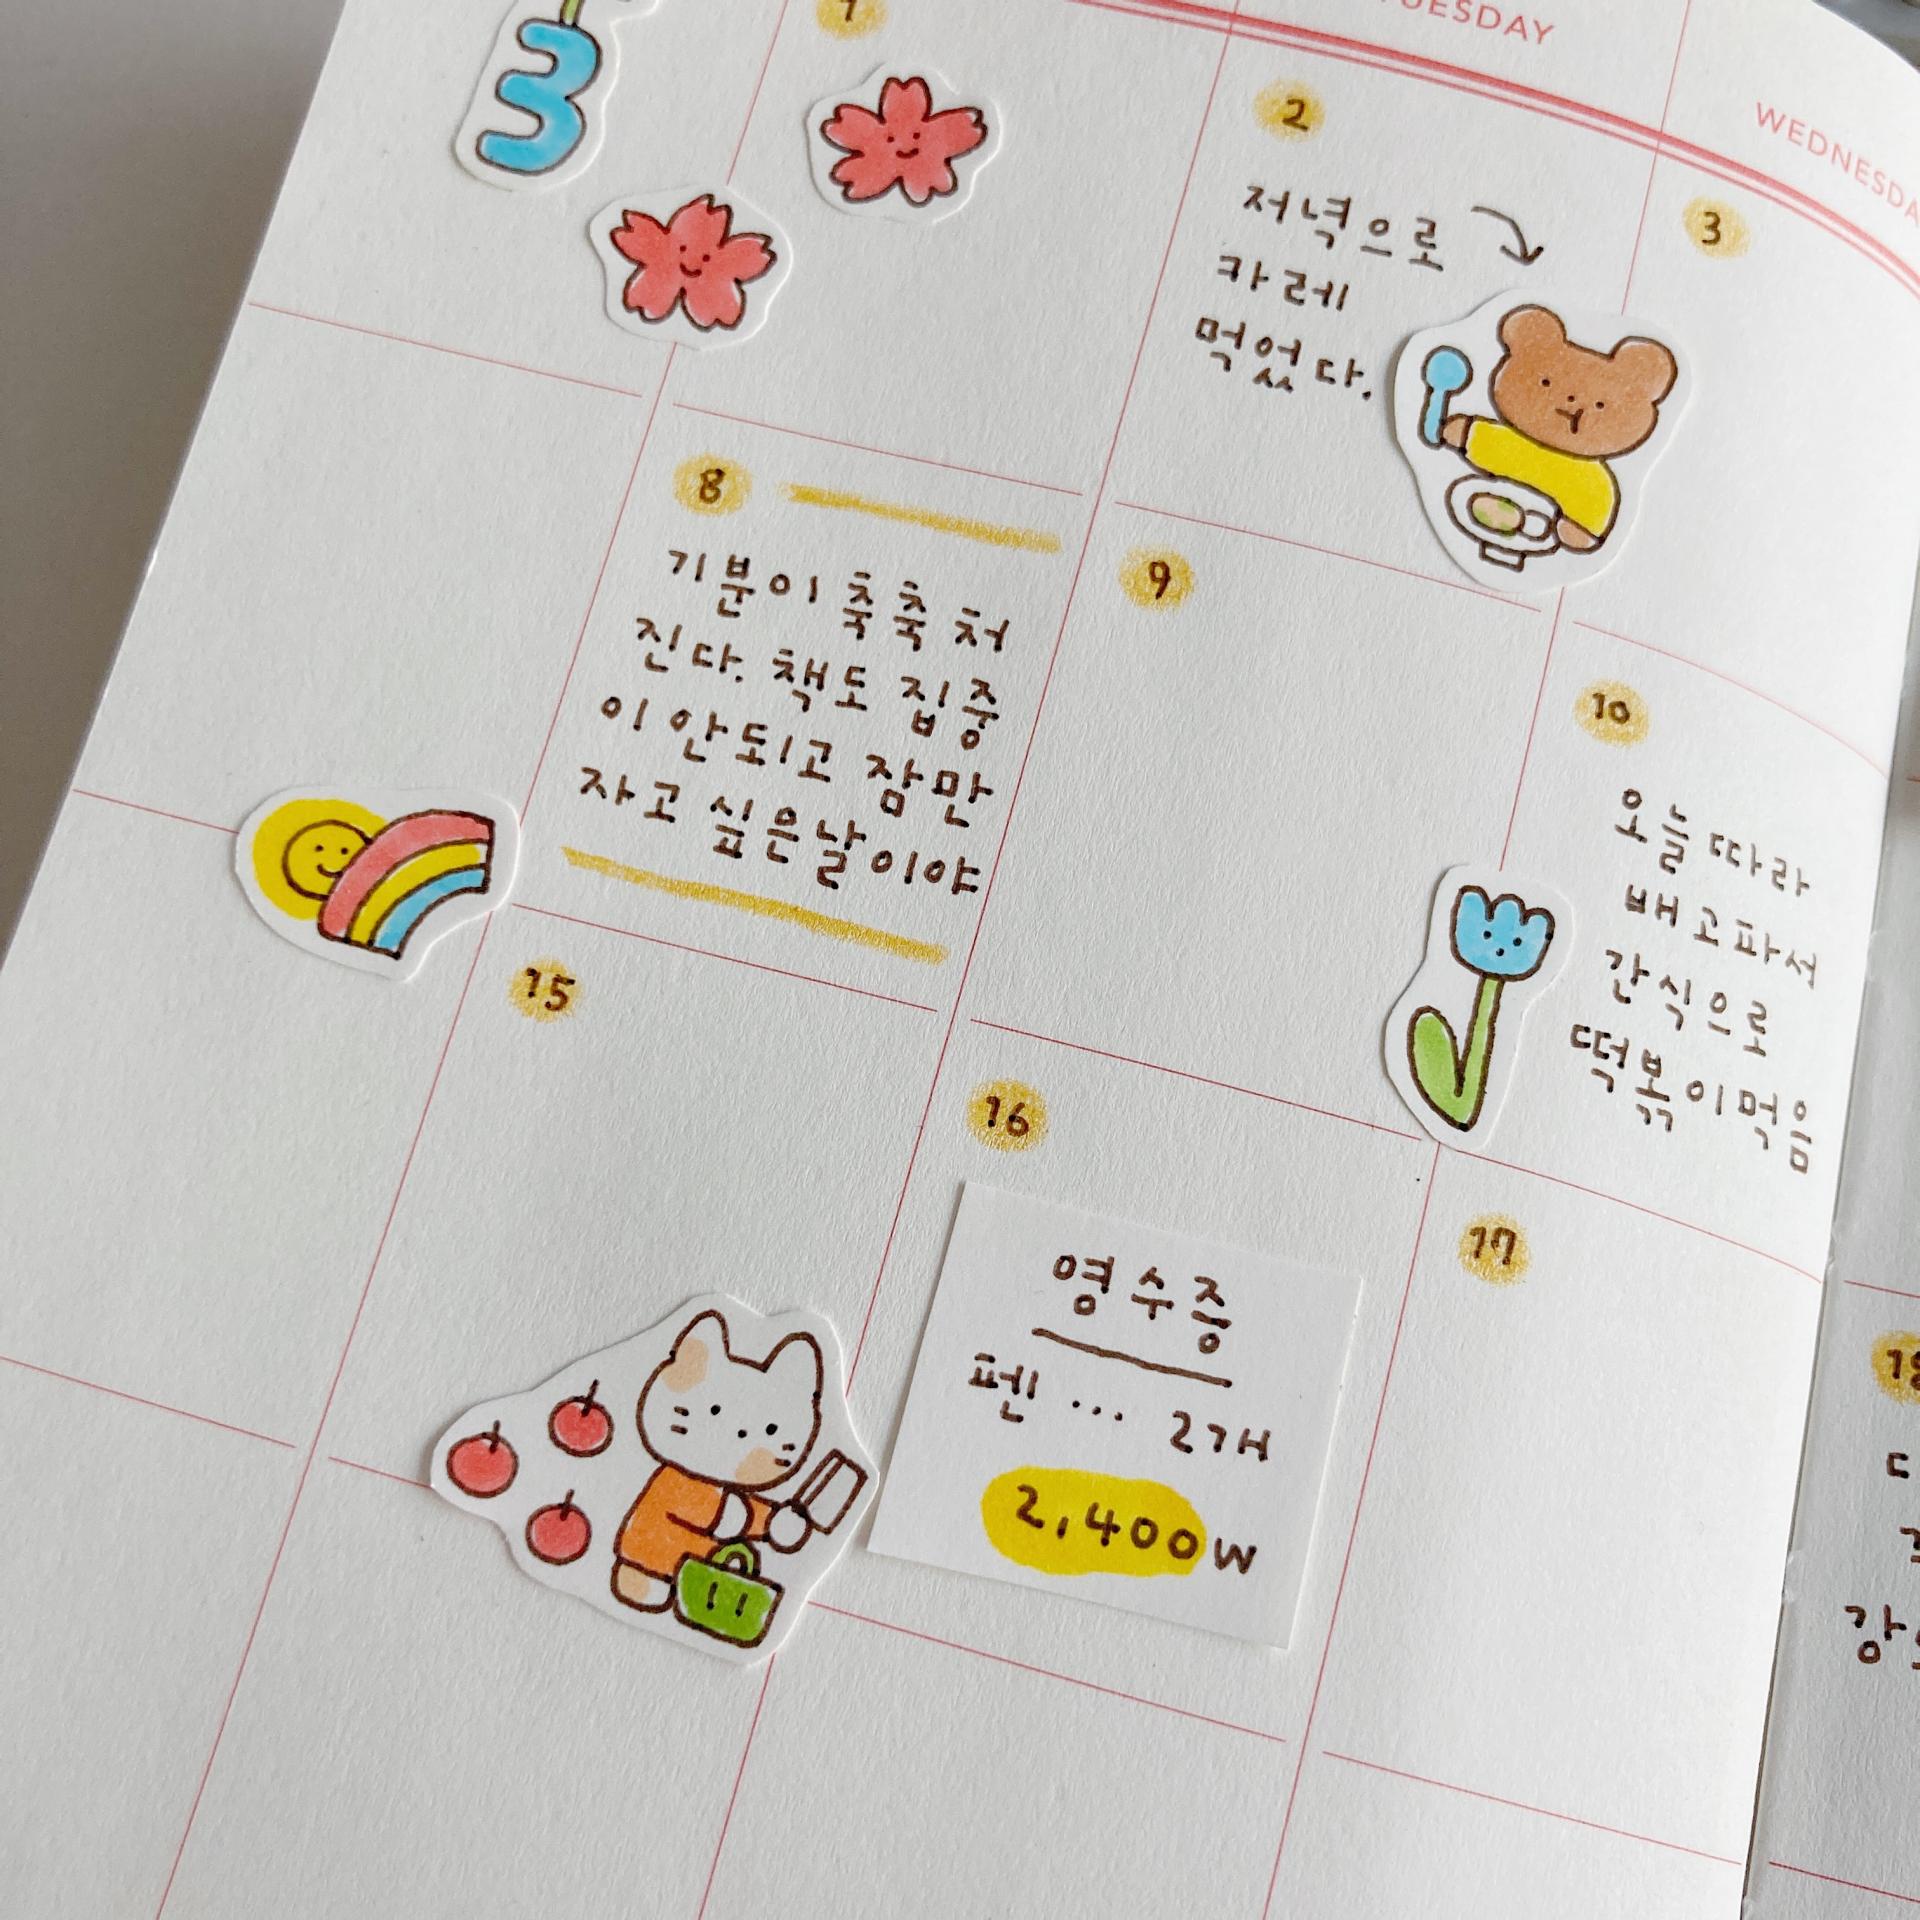 3
TUESDAY
WEDNESDA
1
2
저녁으로
카레
먹었다.
3
8
기분이 축축 처
진다. 책도 집중
이 안되고 잠만
자고 싶은날이야
9
10
오늘따라
배고파서
간식으로
떡볶이먹음
15
16
영수증
펜 ... 2개
2,400W
17